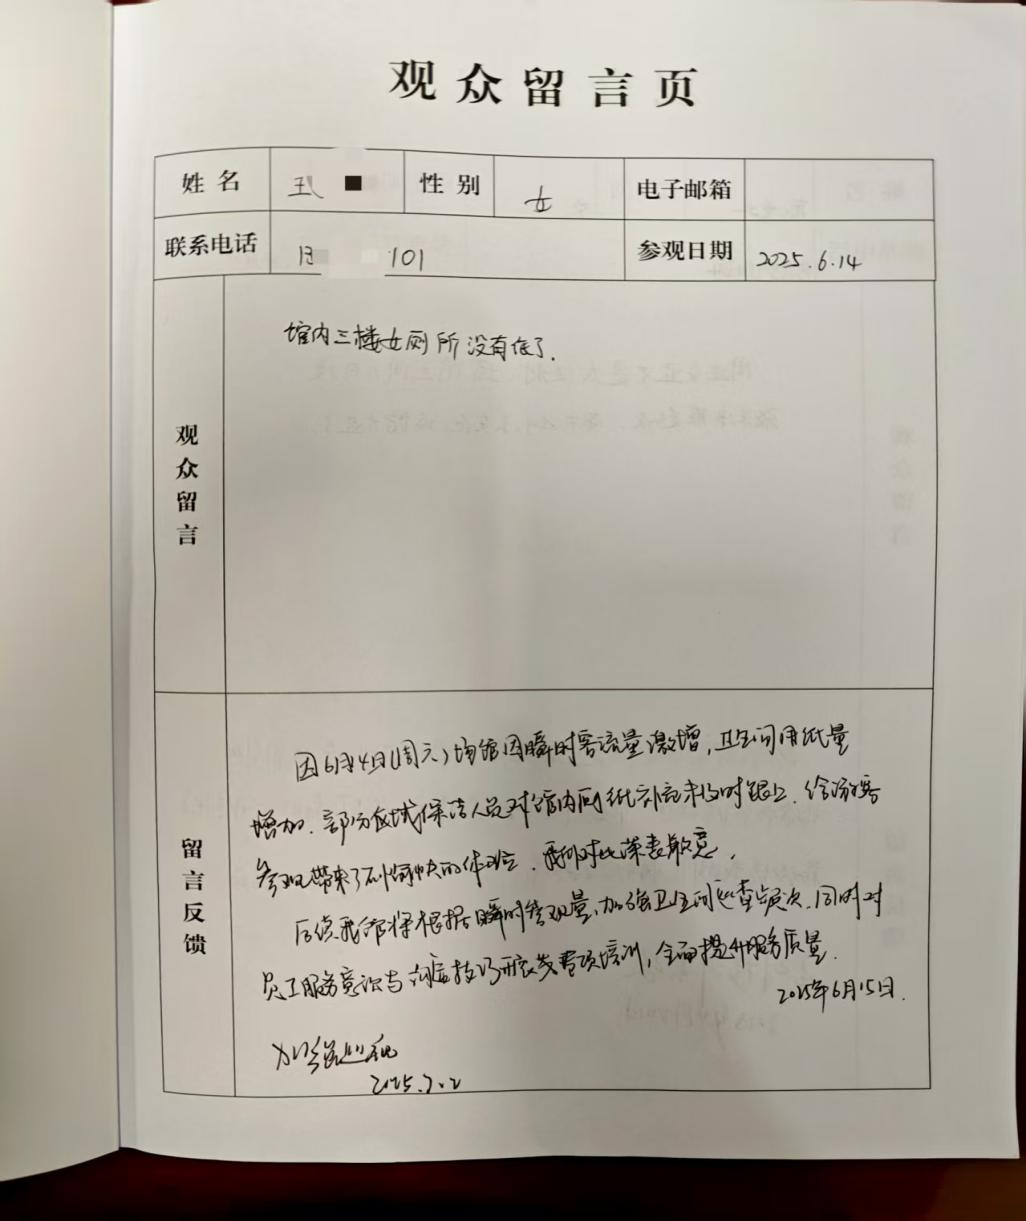 观众留言页
姓名 性别 女 电子邮箱
联系电话 101 参观日期 2025.6.14
观众留言
馆内三楼女厕所没有纸了.
留言反馈
因6月14日(周六)场馆因瞬时客流量激增,卫生间用纸量
增加.部分区域保洁人员对馆内厕纸补充未及时跟上.给游客
参观带来了不愉快的体验.我们对此深表歉意.
后续我部将根据瞬时参观量,加强卫生间巡查频次.同时对
员工服务意识与沟通技巧开展专项培训,全面提升服务质量.
2025年6月15日.
加强巡视
2025.7.2